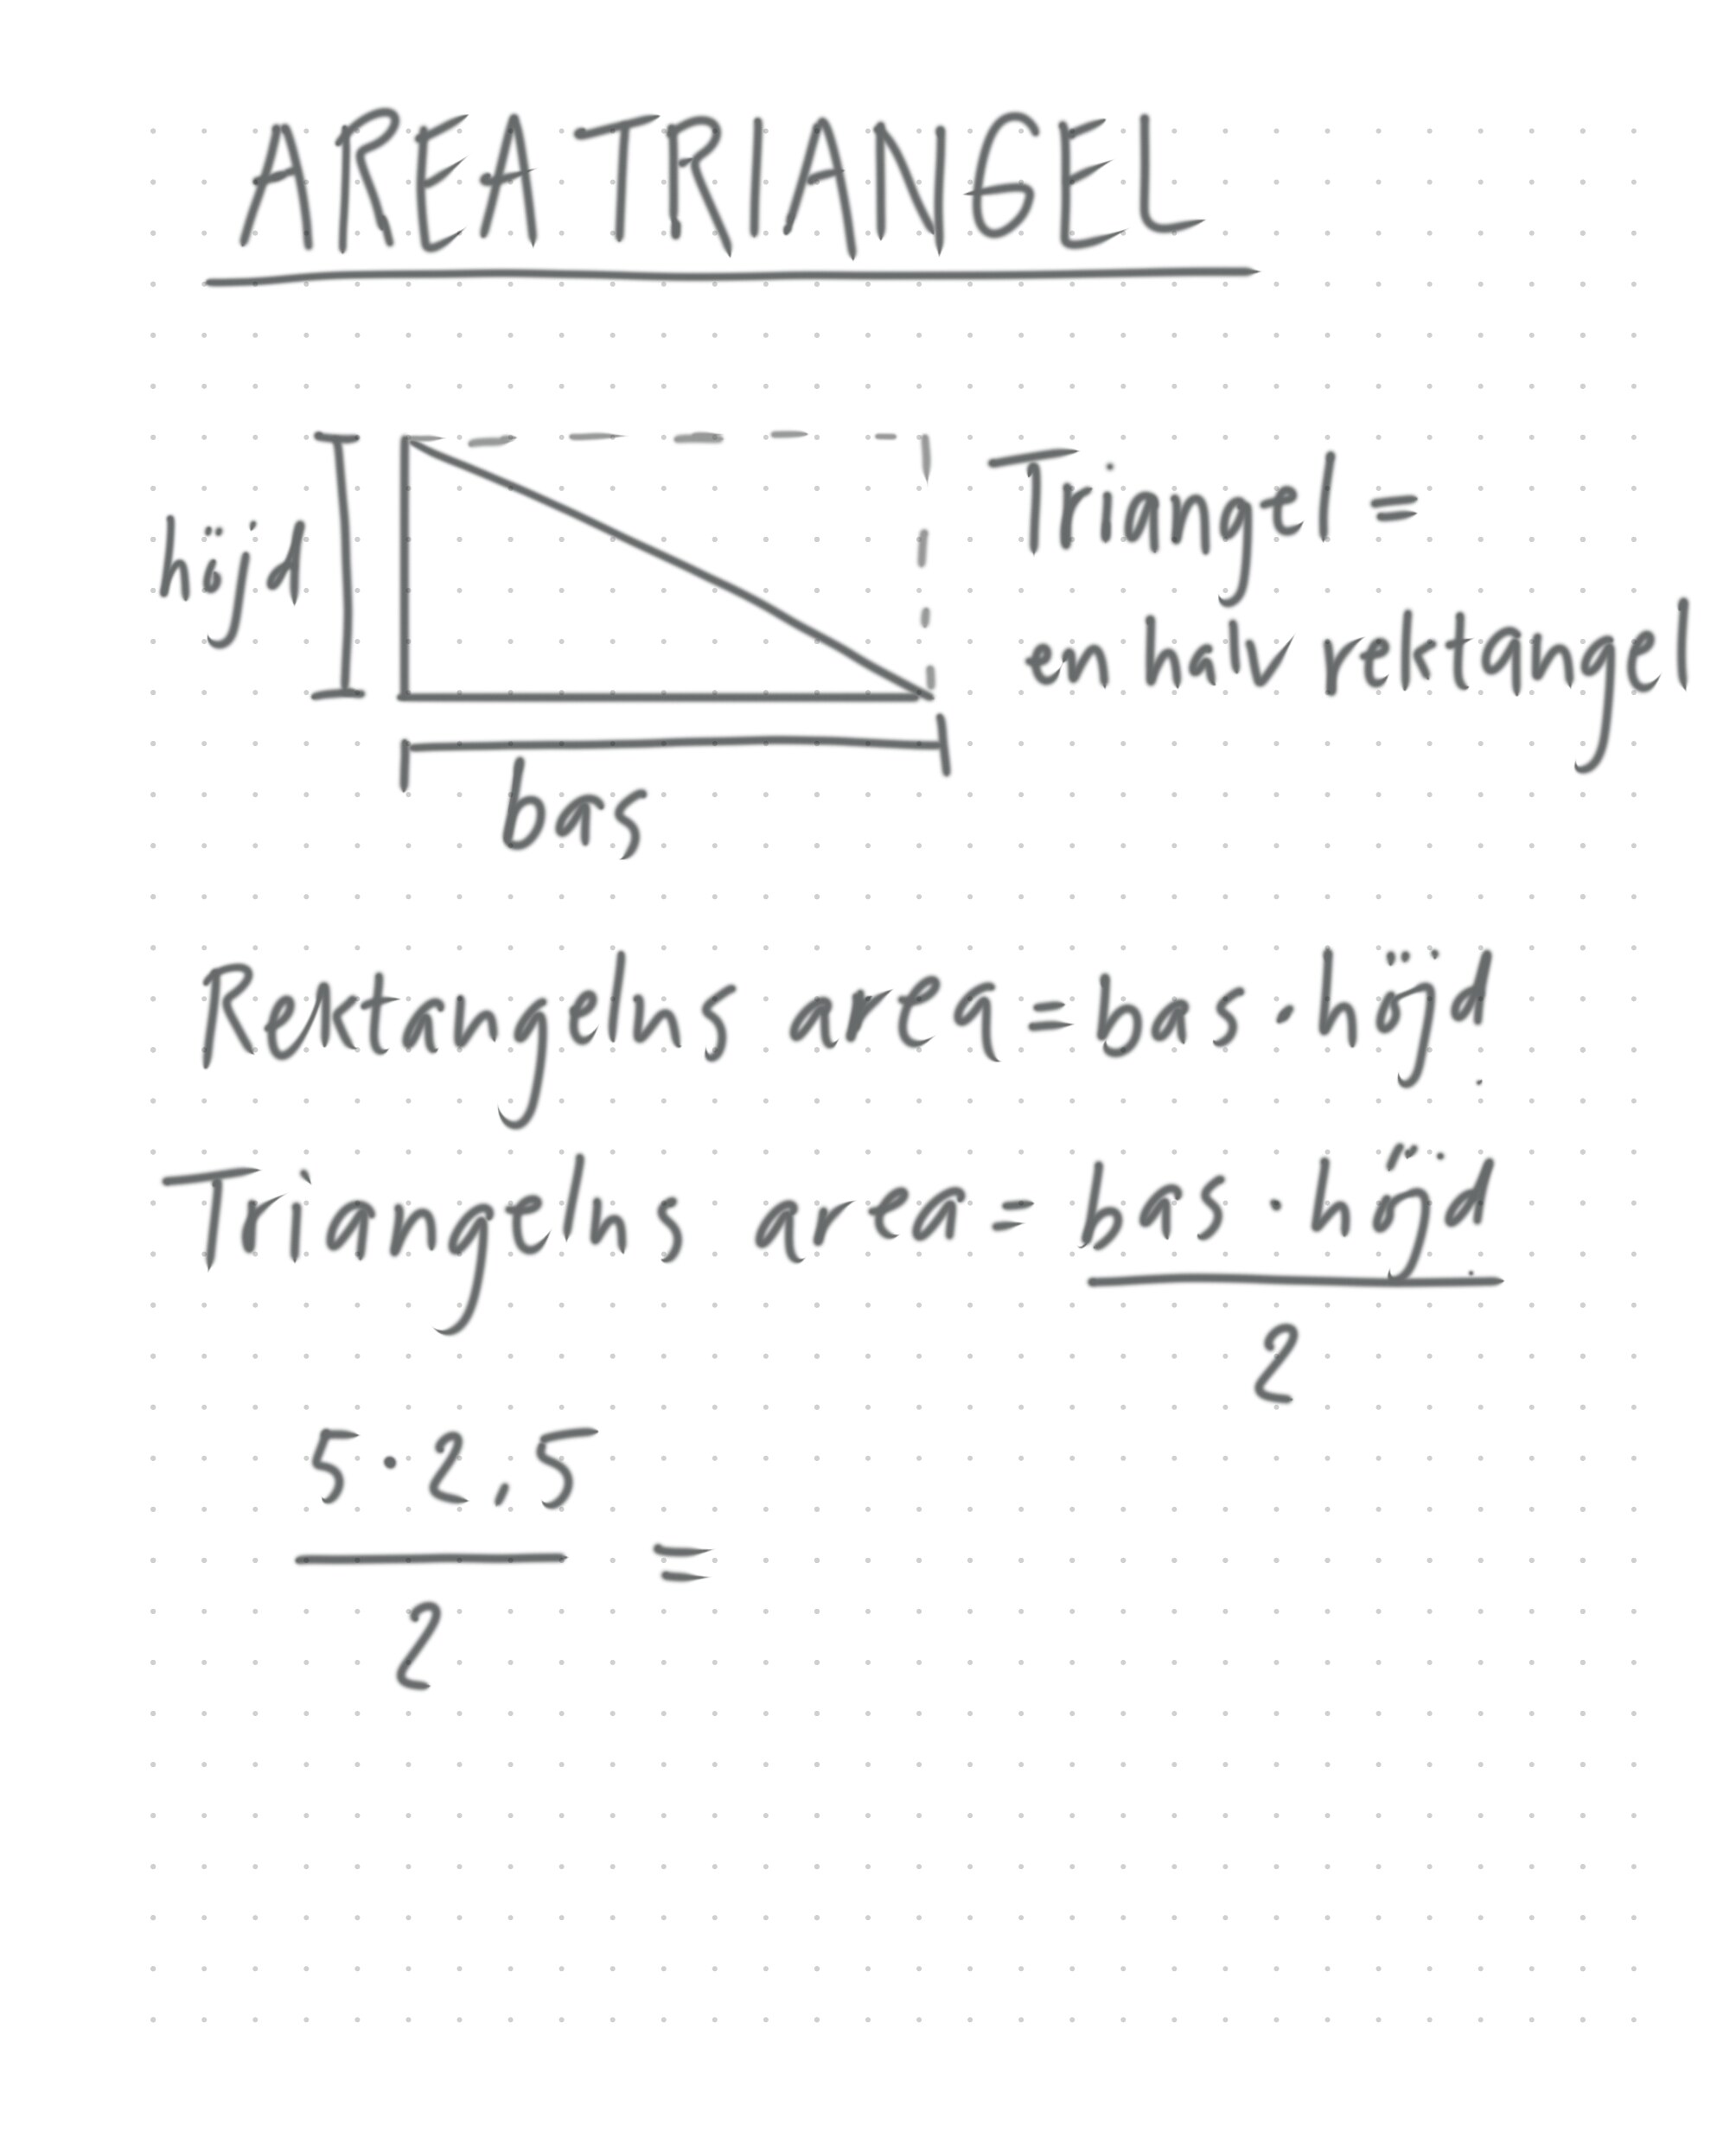 AREA TRIANGEL
höjd
Triangel =
en halv rektangel
bas
Rektangelns area = bas · höjd
Triangelns area = bas · höjd
2
5 · 2,5
=
2